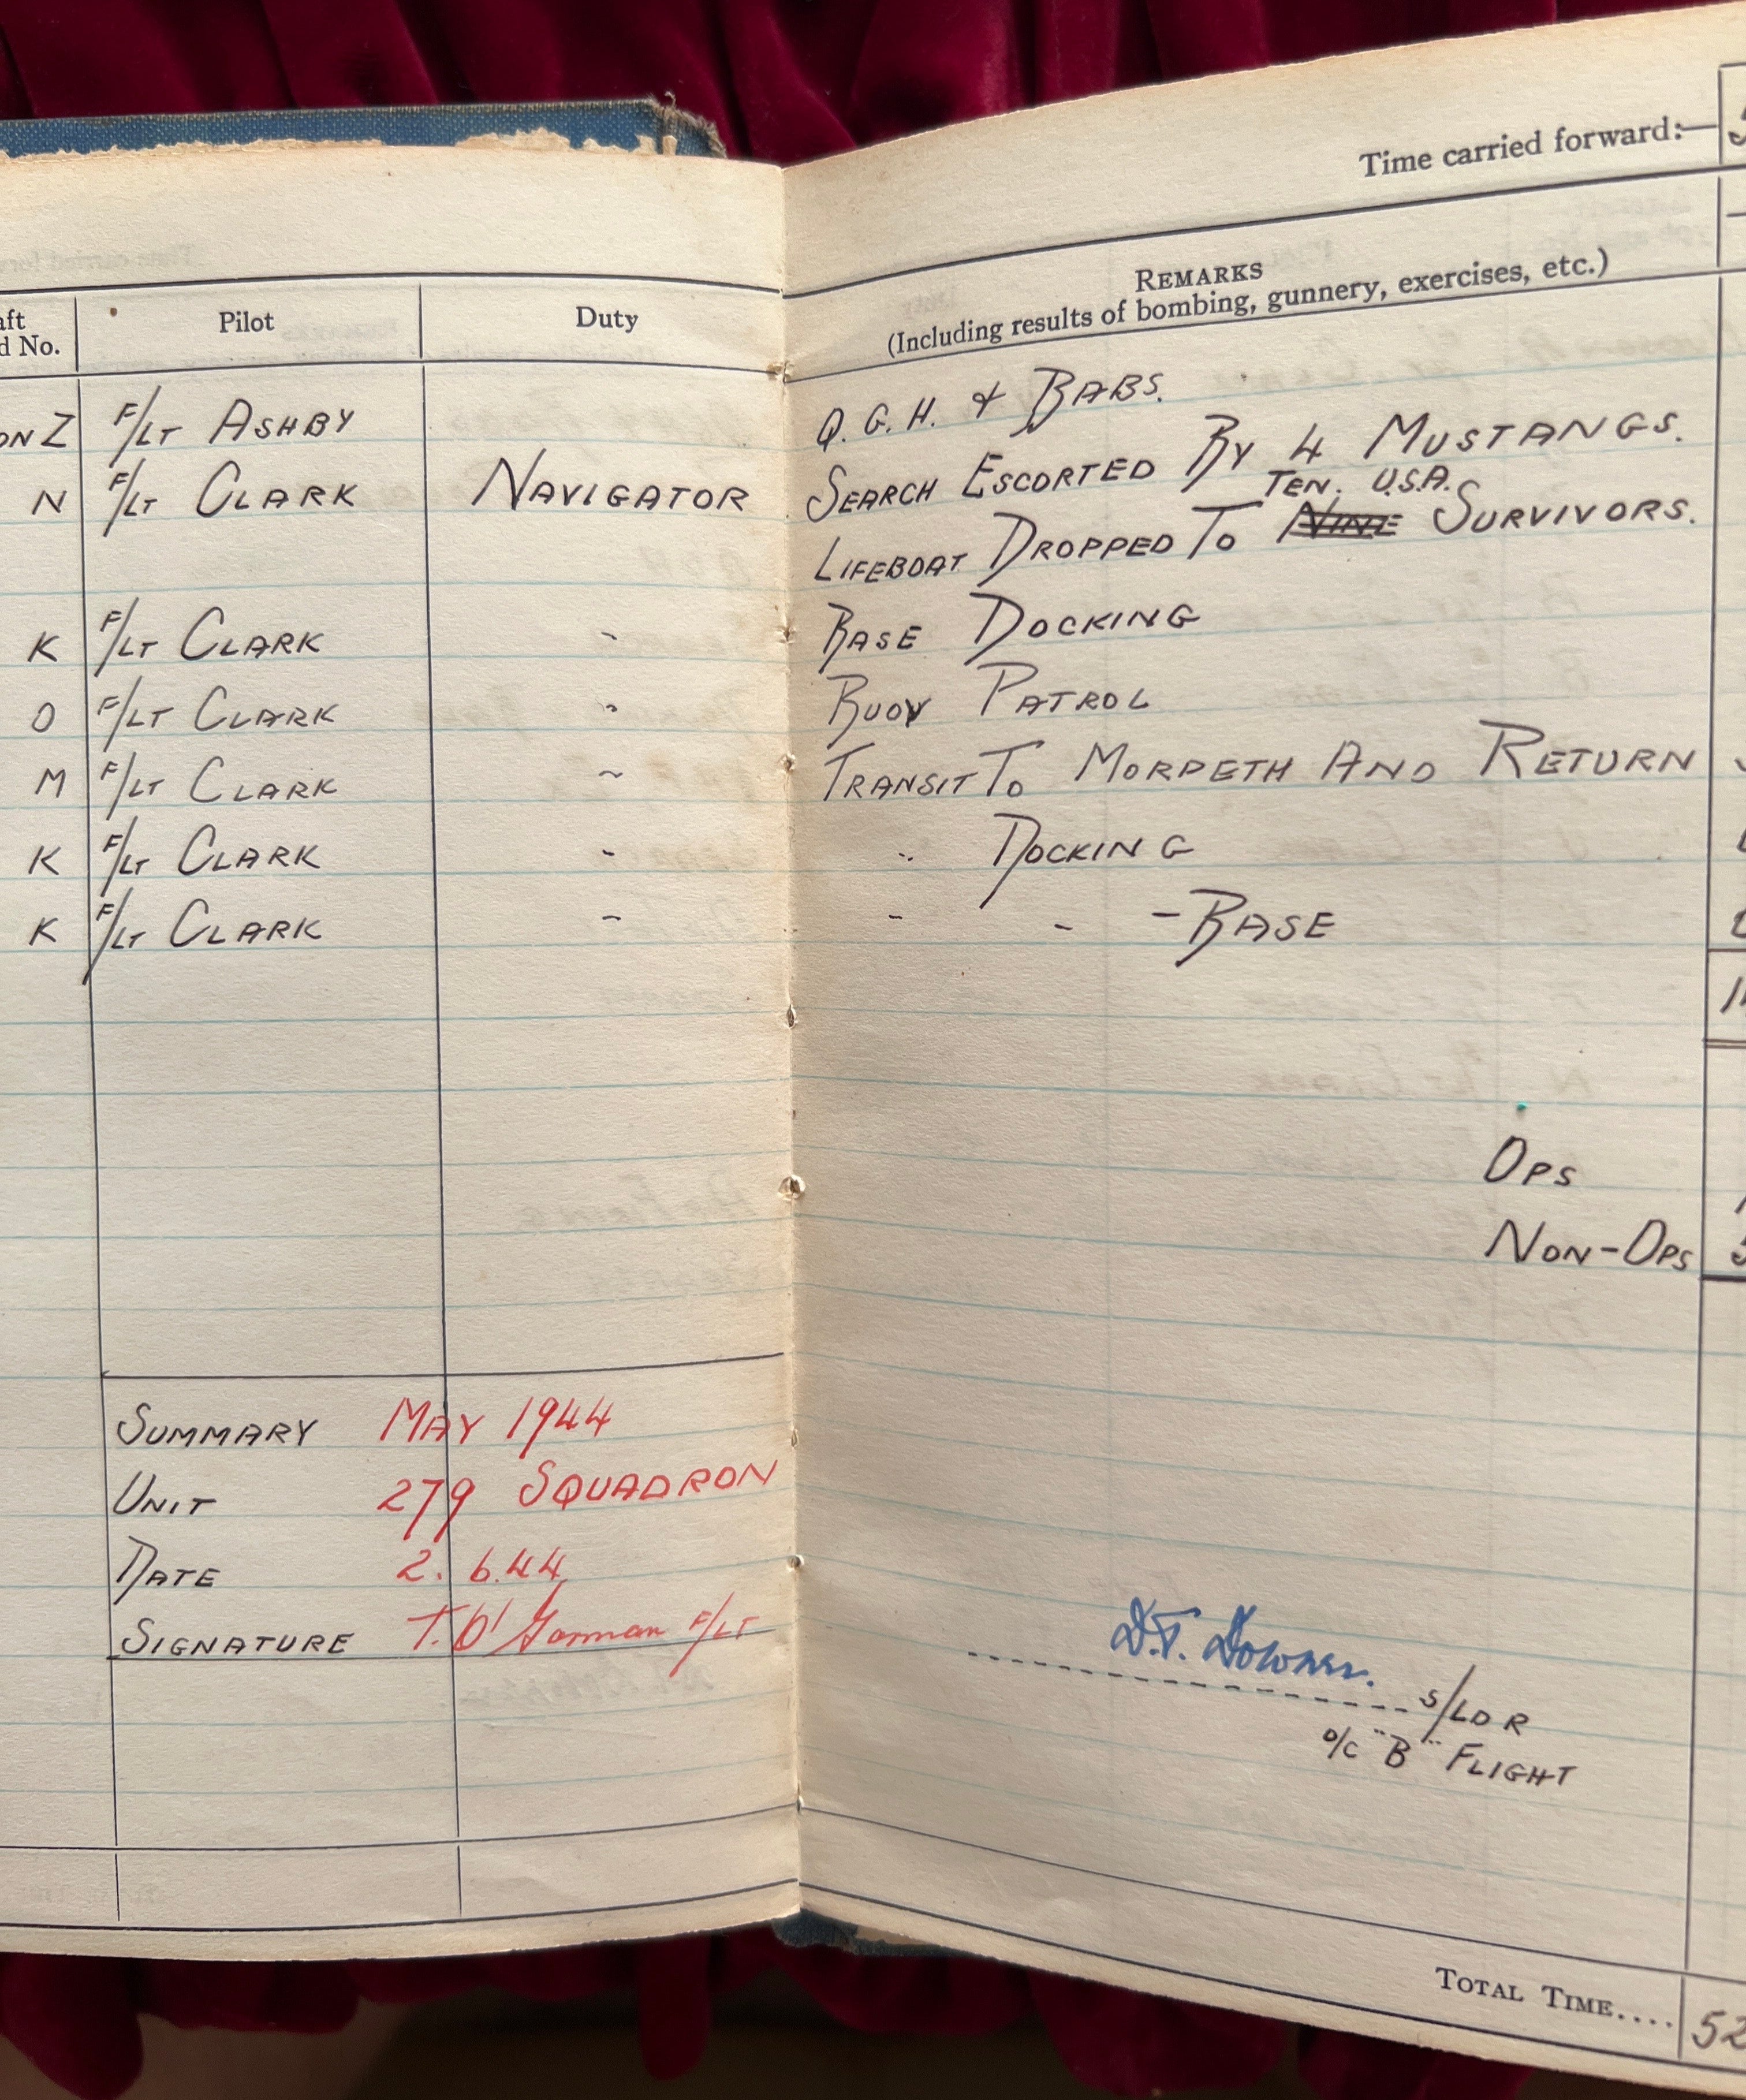 Time carried forward:—
Pilot
Duty
REMARKS
(Including results of bombing, gunnery, exercises, etc.)
No.
Z F/LT ASHBY Q.G.H. & BABS.
N F/LT CLARK NAVIGATOR SEARCH ESCORTED BY 4 MUSTANGS.
TEN. U.S.A.
LIFEBOAT DROPPED TO NINE SURVIVORS.
K F/LT CLARK - BASE DOCKING
O F/LT CLARK " BUOY PATROL
M F/LT CLARK ~ TRANSIT TO MORPETH AND RETURN
K F/LT CLARK - " DOCKING
K F/LT CLARK - - - -BASE
OPS
NON-OPS
SUMMARY MAY 1944
UNIT 279 SQUADRON
DATE 2.6.44
SIGNATURE T. O'Gorman F/LT
S/LDR
O/C "B" FLIGHT
TOTAL TIME....
52